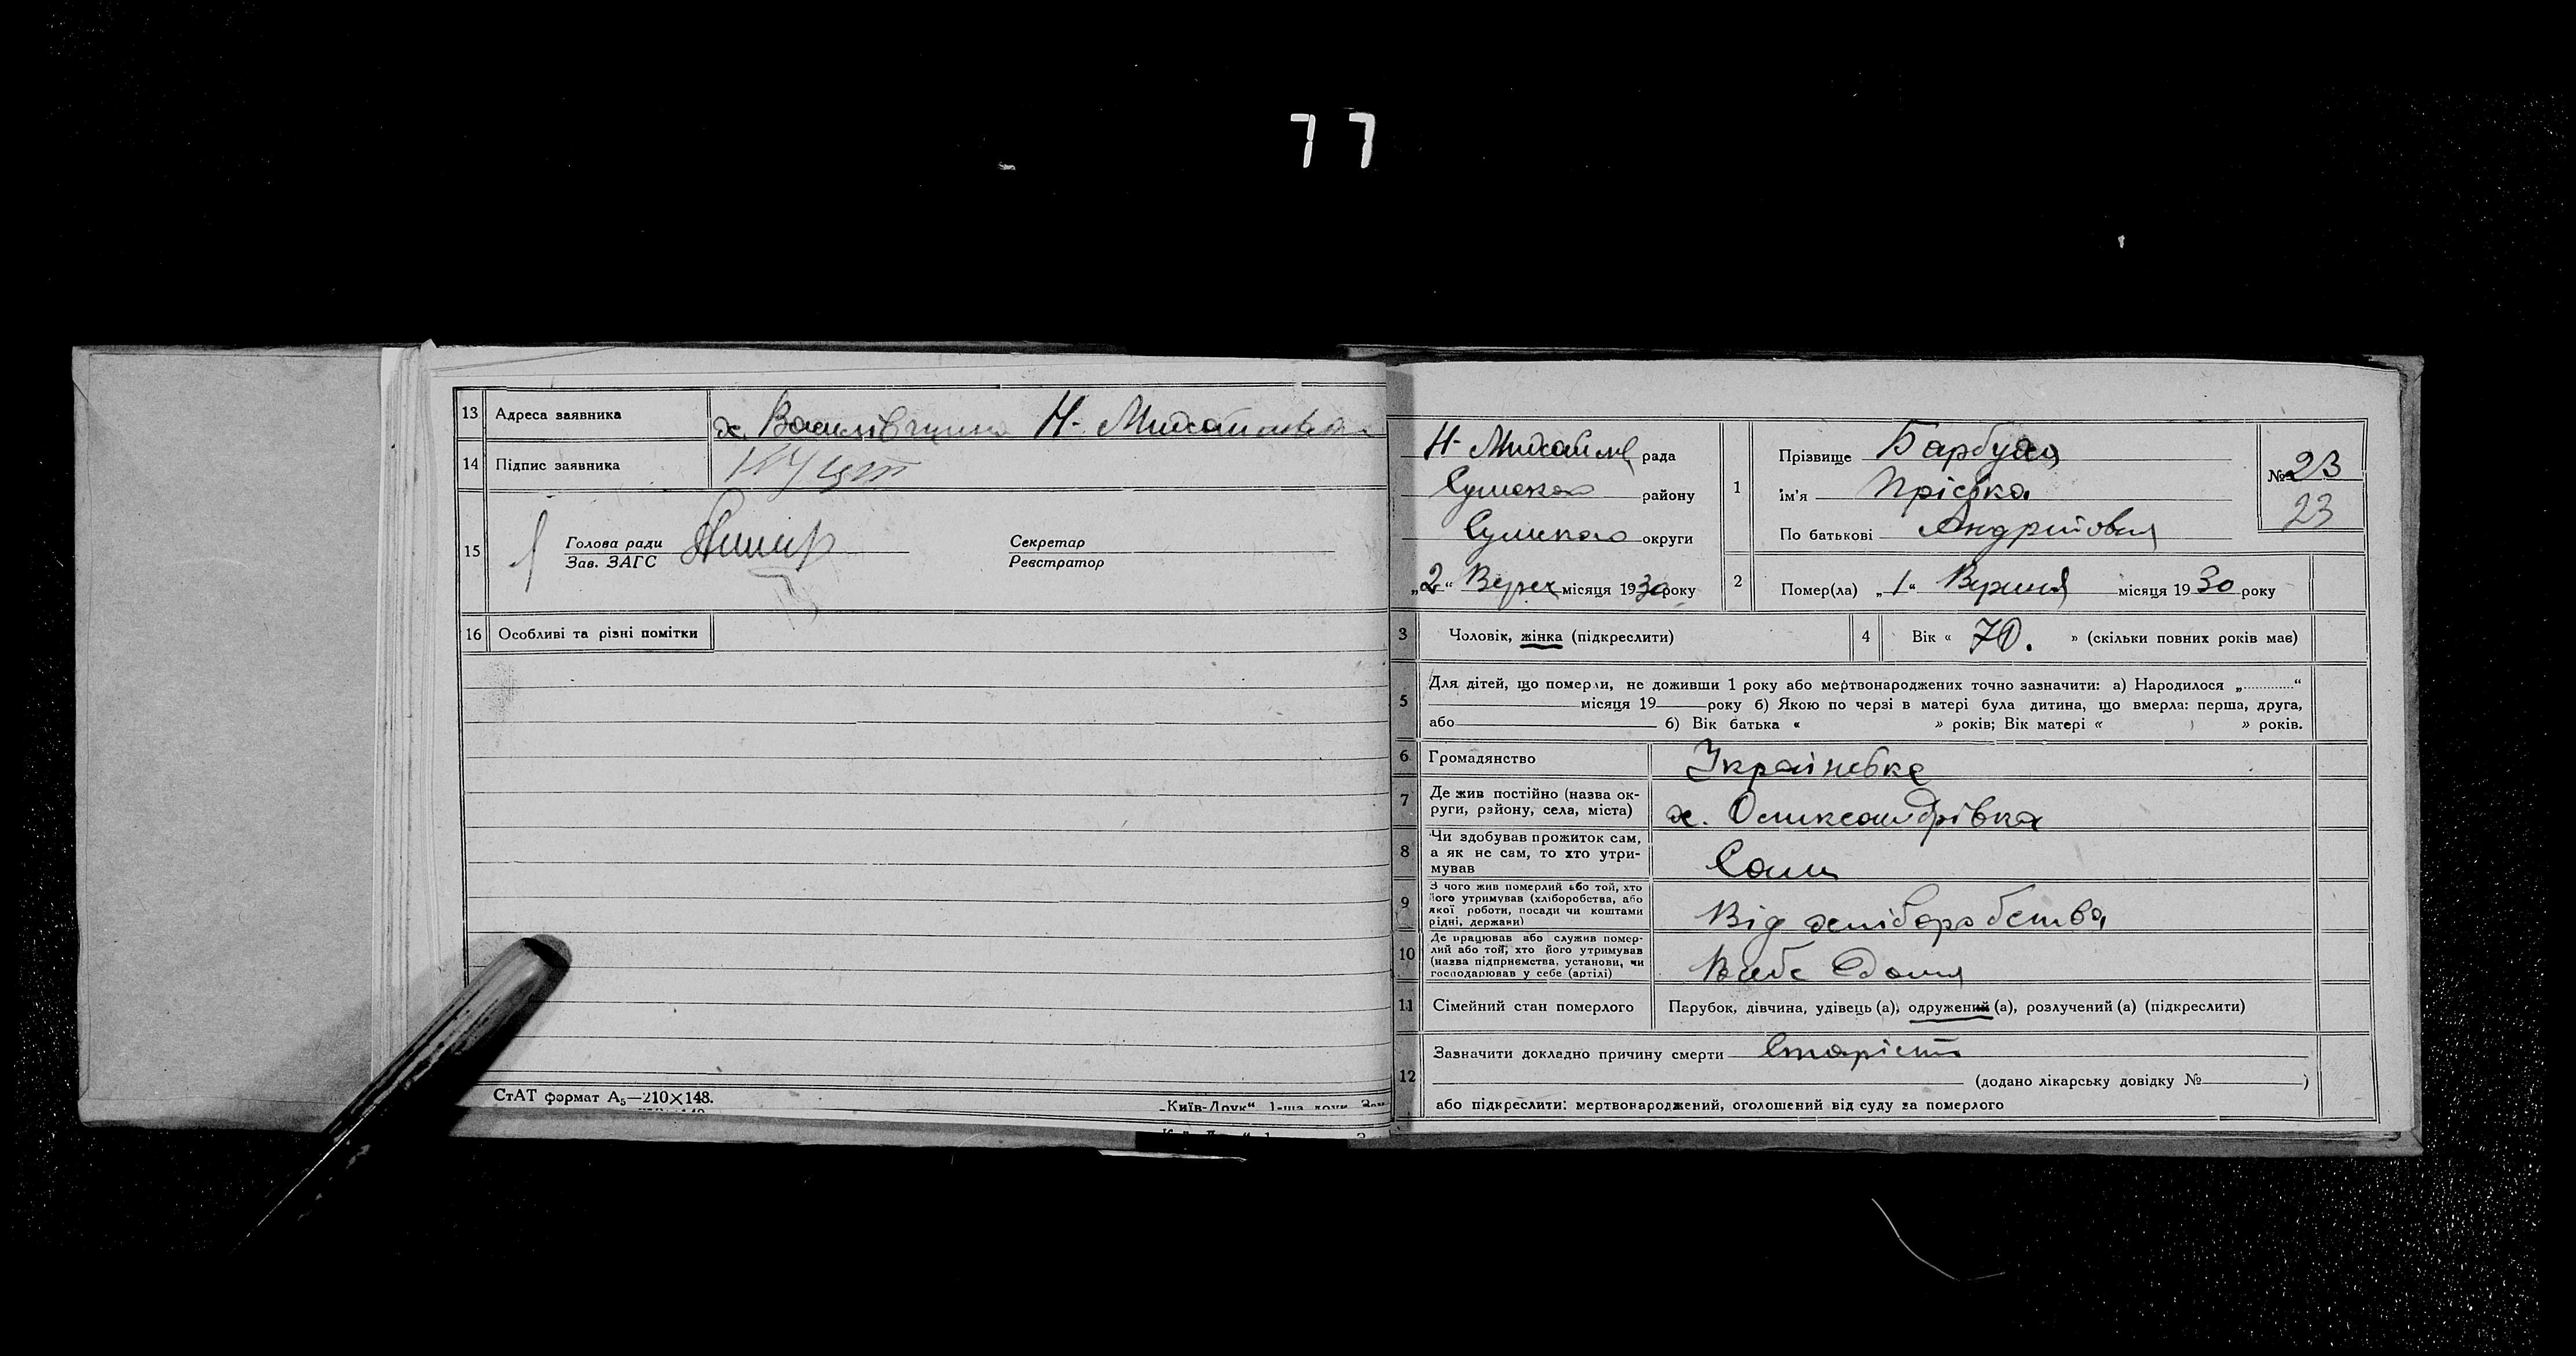 77
13 Адреса заявника х. Василівщина Н- Михайлівка
14 Підпис заявника
15 Голова ради Секретар
Зав. ЗАГС Реєстратор
16 Особливі та різні помітки
СтАТ формат А5—210×148.
„Київ-Друк“ 1-ша друк. Зак
Н- Михайлів рада
Сумского району
Сумского округи
„2“ Верес місяця 1930 року
1 Прізвище Барбуха
ім'я Прісвка
По батькові Андріївна
№ 23
23
2 Помер(ла) „1“ Вересня місяця 1930 року
3 Чоловік, жінка (підкреслити)
4 Вік « 70. » (скільки повних років має)
5 Для дітей, що померли, не доживши 1 року або мертвонароджених точно зазначити: а) Народилося „............“
місяця 19 року б) Якою по черзі в матері була дитина, що вмерла: перша, друга,
або 6) Вік батька « » років; Вік матері « » років.
6 Громадянство Українка
7 Де жив постійно (назва ок-
руги, району, села, міста) х. Олександрівка
8 Чи здобував прожиток сам,
а як не сам, то хто утри-
мував Сами
9 З чого жив померлий або той, хто
його утримував (хліборобства, або
якої роботи, посади чи коштами
рідні, держави) Від хліборобства
10 Де працював або служив помер-
лий або той, хто його утримував
(назва підприємства, установи, чи
господарював у себе (артілі) В себе дома
11 Сімейний стан померлого Парубок, дівчина, удівець (а), одружений (а), розлучений (а) (підкреслити)
12 Зазначити докладно причину смерти Старість
(додано лікарську довідку № )
або підкреслити: мертвонароджений, оголошений від суду за померлого